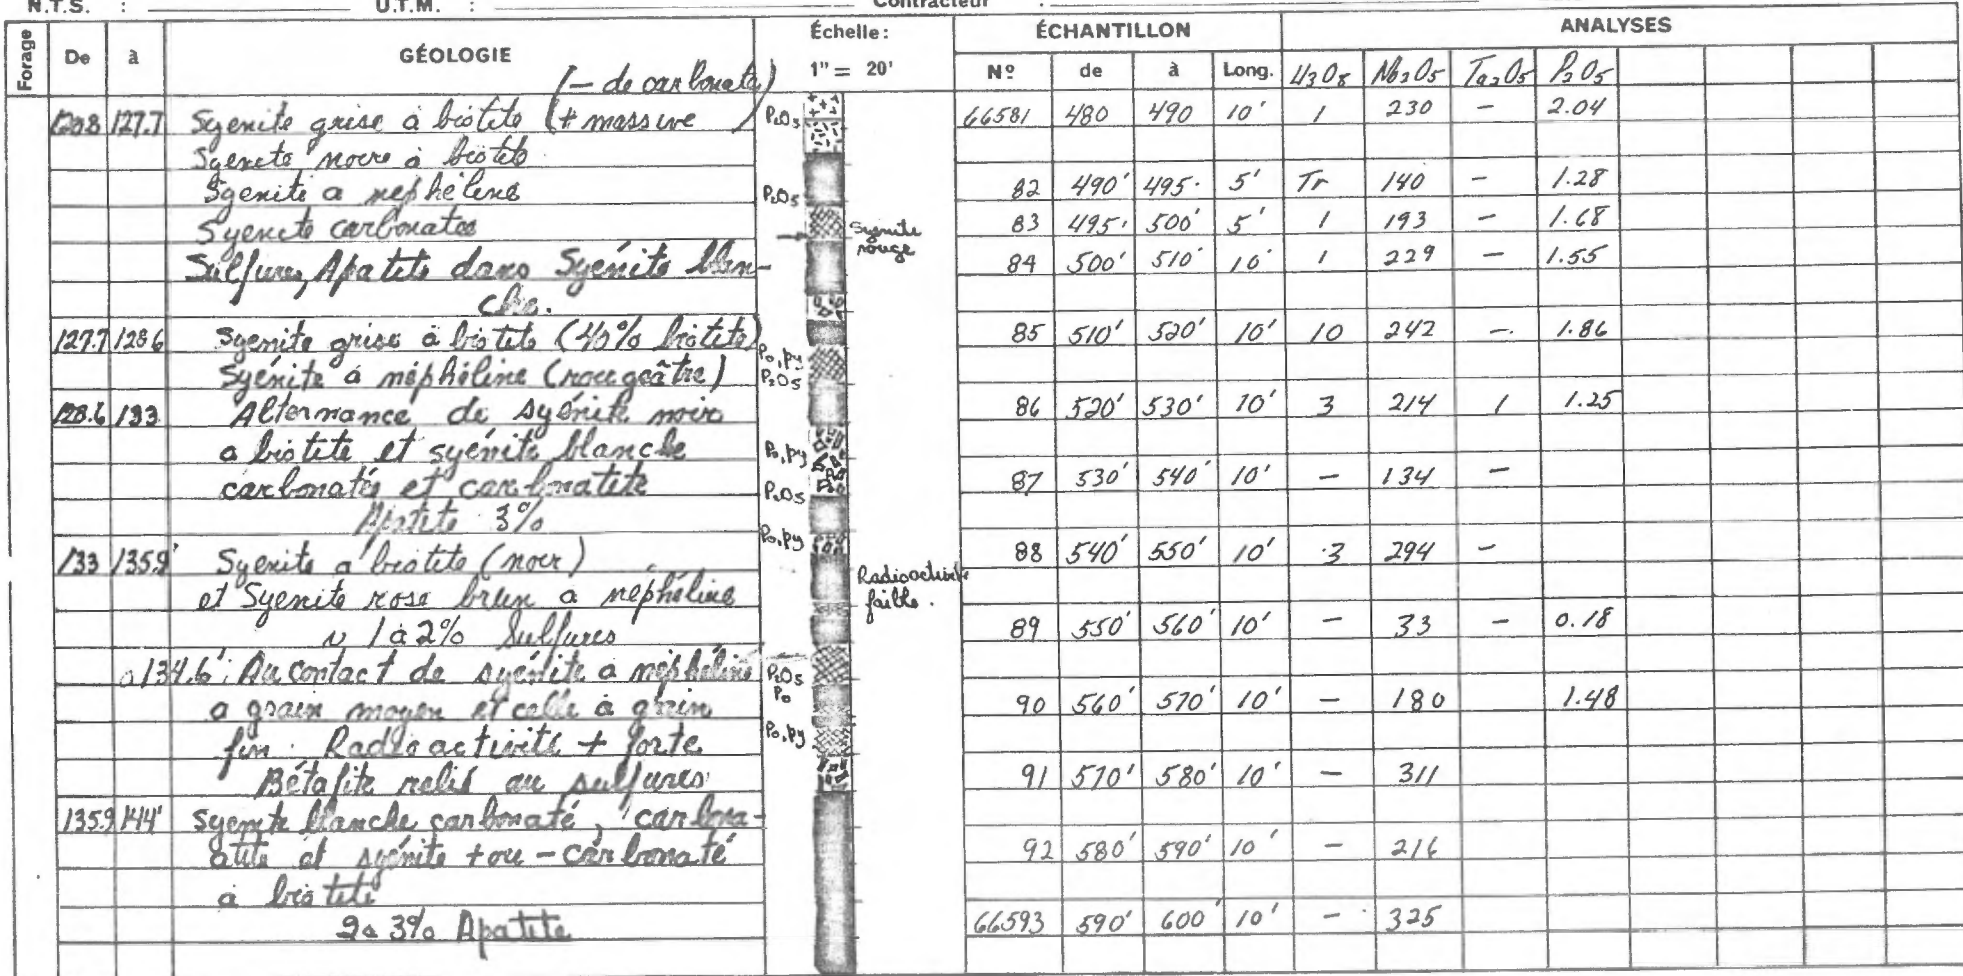 N.T.S. : U.T.M. : Contracteur :
Forage De à GÉOLOGIE Échelle: 1" = 20' ÉCHANTILLON ANALYSES
Nº de à Long. U3O8 Nb2O5 Ta2O5 P2O5
(- de carbonate)
127.7 Syenite grise à biotite (+ massive
Syenite noire à biotite
Syenite a nephéline
Syenite carbonatée
Sulfures, Apatite dans Syénite blan-
che.
127.7 128.6 Syenite grise à biotite (40% biotite)
Syénite à néphéline (rougeâtre)
128.6 133 Alternance de syénite noire
a biotite et syénite blanche
carbonatés et carbonatite
Apatite 3%
133 135.9' Syenite a biotite (noir)
et Syenite rose brun a nepheline
1 à 2% Sulfures
a 134.6': Au contact de syénite a néphéline
a grain moyen et celle à grain
fin. Radioactivité + forte
Bétafite relié au sulfures
135.9 144' Syenite blanche carbonaté, carbona-
atite et syénite + ou - carbonaté
à biotite
2 a 3% Apatite
P2O5
P2O5
Syenite
rouge
Po, py
P2O5
Po, py
P2O5
Po, py
Radioactivité
faible.
P2O5
Po
Po, py
66581 480 490 10' 1 230 - 2.04
82 490' 495' 5' Tr 140 - 1.28
83 495' 500' 5' 1 193 - 1.68
84 500' 510' 10' 1 229 - 1.55
85 510' 520' 10' 10 242 - 1.86
86 520' 530' 10' 3 214 1 1.25
87 530' 540' 10' - 134 -
88 540' 550' 10' 3 294 -
89 550' 560' 10' - 33 - 0.18
90 560' 570' 10' - 180 1.48
91 570' 580' 10' - 311
92 580' 590' 10' - 216
66593 590' 600' 10' - 325